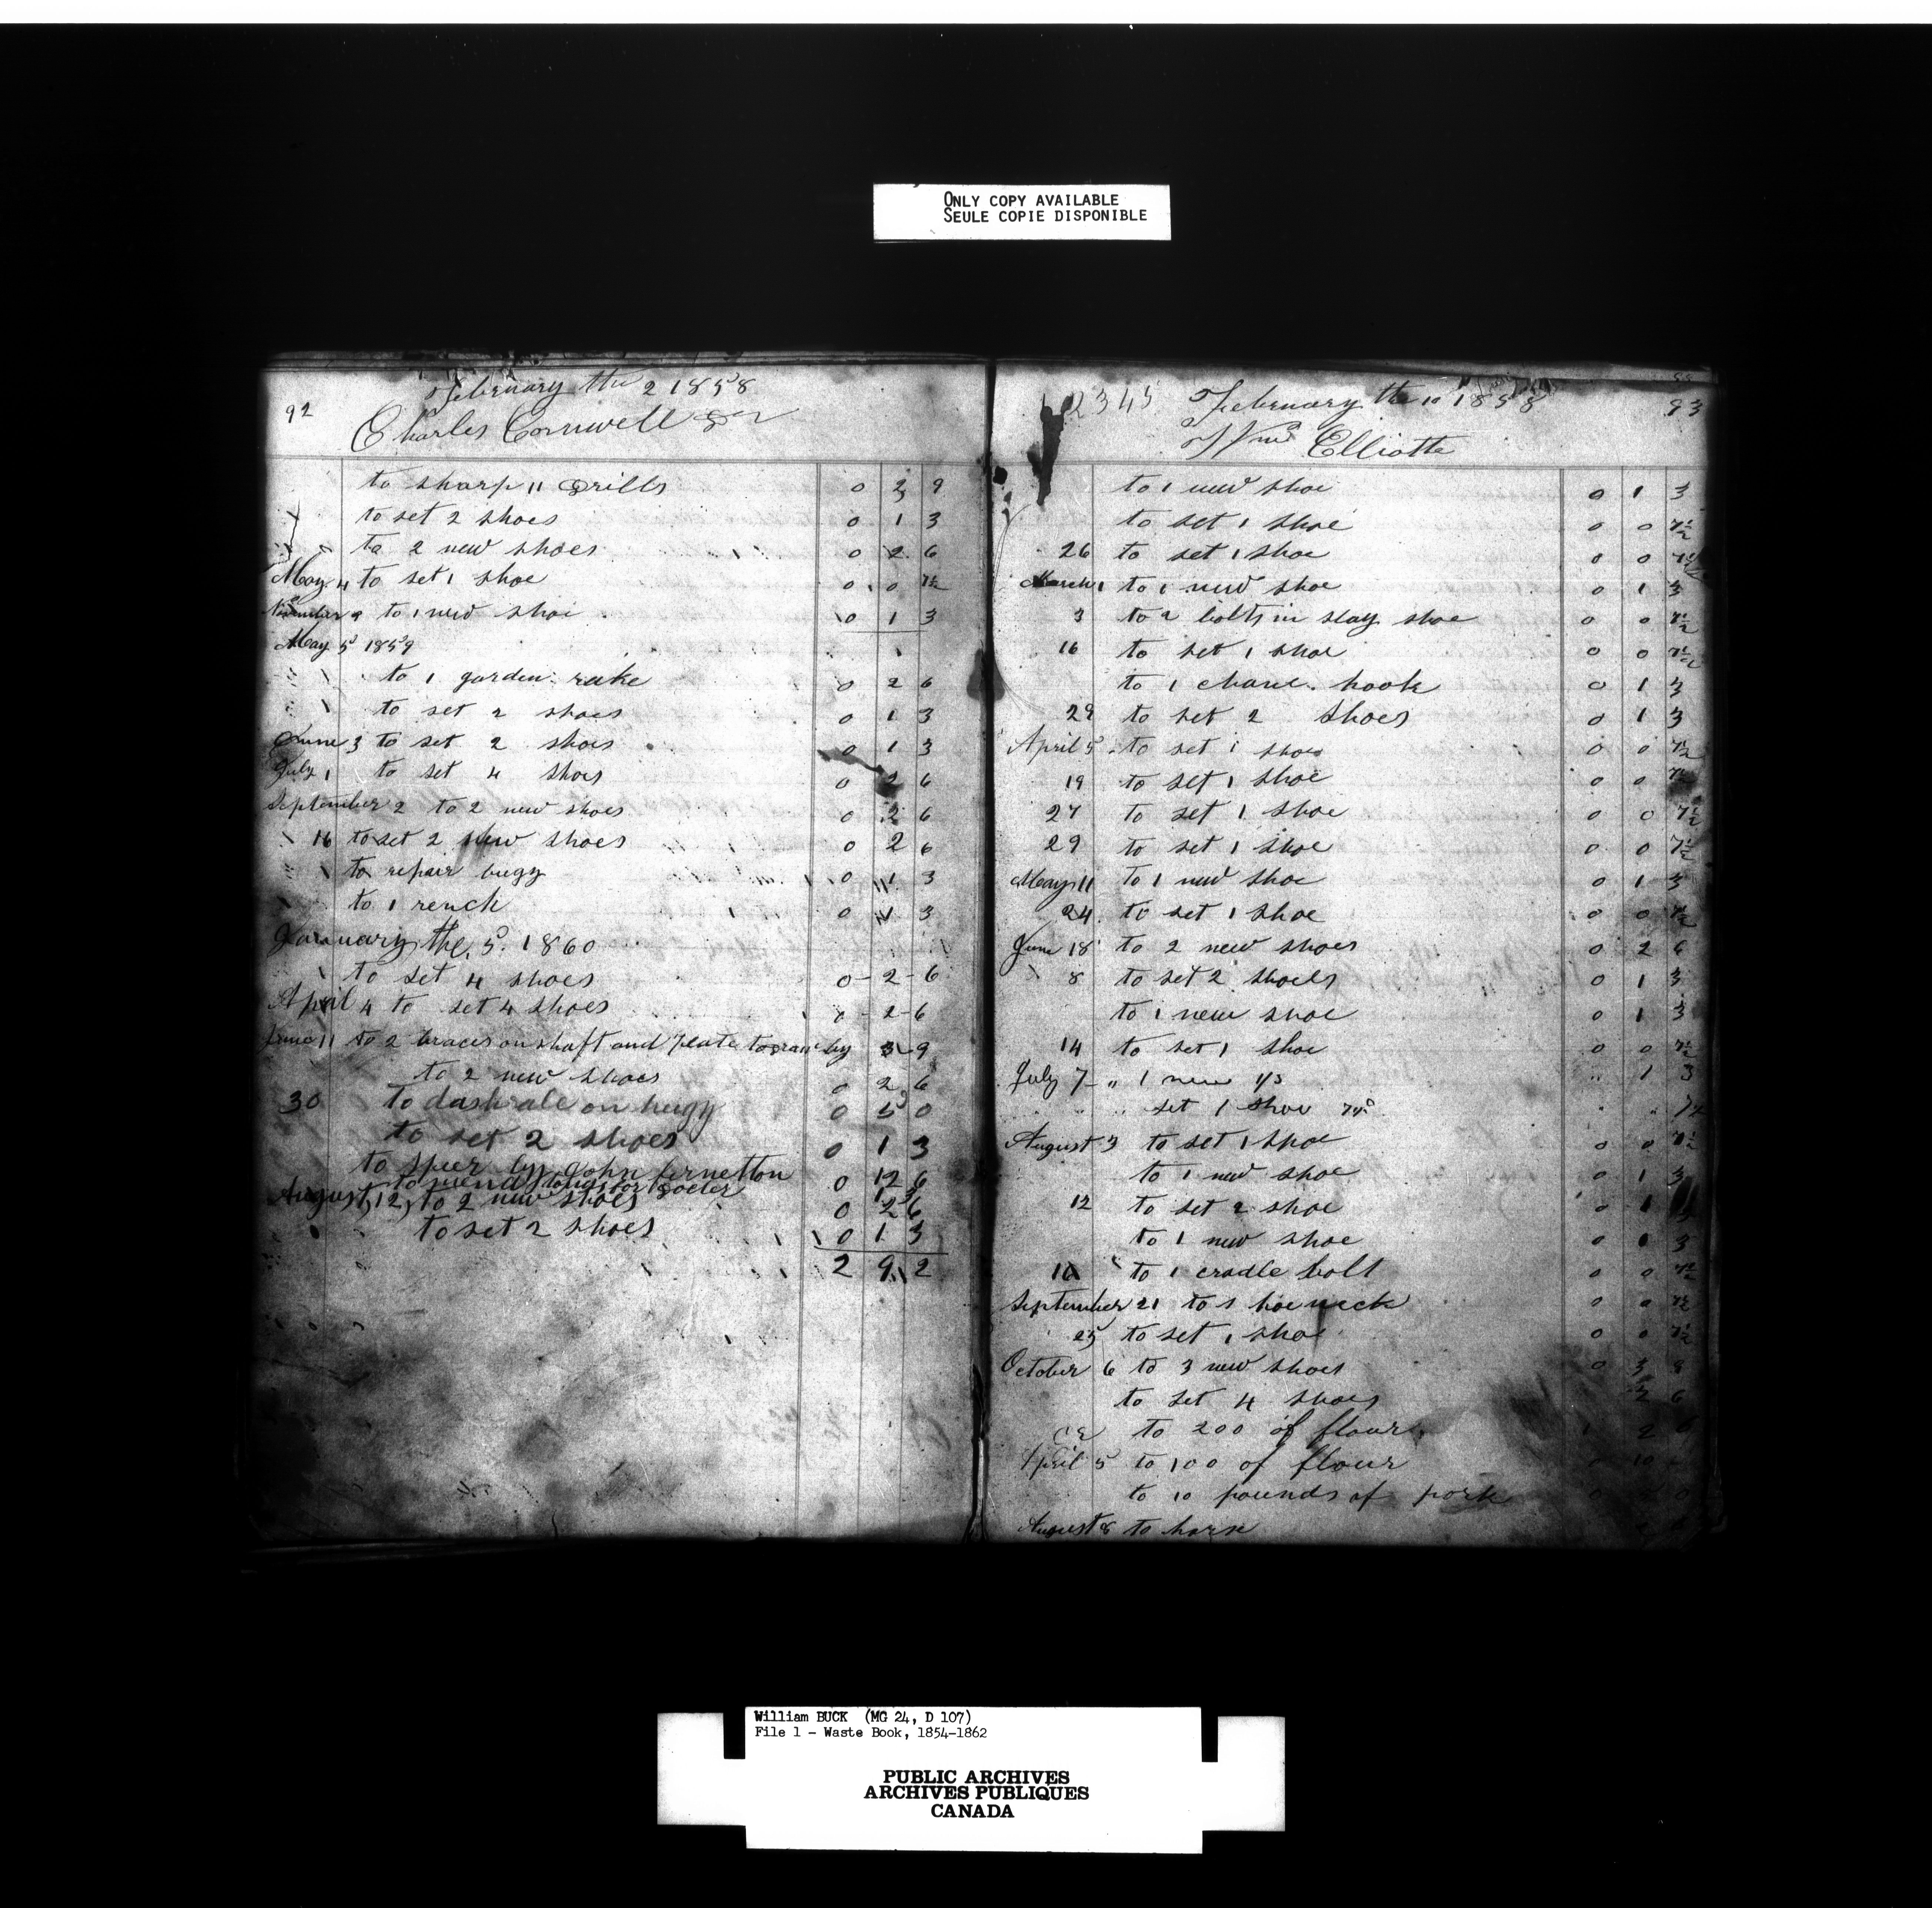 ONLY COPY AVAILABLE
SEULE COPIE DISPONIBLE
92
February the 2 1858
Charles Cornwell Dr
to sharp 11 Drills 0 2 9
to set 2 shoes 0 1 3
to 2 new shoes 0 2 6
May 4 to set 1 shoe 0 0 7½
November 9 to 1 new shoe 0 1 3
May 5 1859
to 1 garden rake 0 2 6
to set 2 shoes 0 1 3
June 3 to set 2 shoes 0 1 3
July 1 to set 4 shoes 0 2 6
September 2 to 2 new shoes 0 2 6
16 to set 2 new shoes 0 2 6
to repair bugy 0 1 3
to 1 rench 0 1 3
January the 5 1860
to set 4 shoes 0 - 2 - 6
April 4 to set 4 shoes 0 - 2 - 6
June 11 to 2 braces on shaft and plate 3 - 9
to 2 new shoes 0 2 6
30 to dash ale on bugy 0 5 0
to set 2 shoes 0 1 3
to by John 0 12 6
to mend tongs for 1 3
August 12, to 2 new shoes 0 2 6
to set 2 shoes 0 1 3
2 9 2
12345
February the 10 1858
93
Wm Elliotte
to 1 new shoe 0 1 3
to set 1 shoe 0 0 7½
26 to set 1 shoe 0 0 7½
March 1 to 1 new shoe 0 1 3
3 to 2 bolts in slay shoe 0 0 7½
16 to set 1 shoe 0 0 7½
to 1 chane hook 0 1 3
29 to set 2 shoes 0 1 3
April 5 to set 1 shoe 0 0 7½
19 to set 1 shoe 0 0 7½
27 to set 1 shoe 0 0 7½
29 to set 1 shoe 0 0 7½
May 11 to 1 new shoe 0 1 3
24 to set 1 shoe 0 0 7½
June 18 to 2 new shoes 0 2 6
8 to set 2 shoes 0 1 3
to 1 new shoe 0 1 3
14 to set 1 shoe 0 0 7½
July 7 - " 1 new 1/3 " 1 3
" " set 1 shoe 7½ " " 7½
August 3 to set 1 shoe 0 0 7½
to 1 new shoe 0 1 3
12 to set 2 shoe 0 1
to 1 new shoe 0 1 3
16 to 1 cradle bolt 0 0 7½
September 21 to 1 hoe neck 0 0 7½
25 to set 1 shoe 0 0 7½
October 6 to 3 new shoes 0 3 8
to set 4 shoes 2 6
CR to 200 of flour 1 2 6
April 5 to 100 of flour 10
to 10 pounds of pork
August 8 to horse
William BUCK (MG 24, D 107)
File 1 - Waste Book, 1854-1862
PUBLIC ARCHIVES
ARCHIVES PUBLIQUES
CANADA